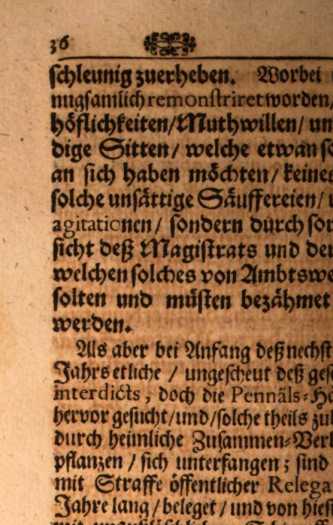 36
schleunig zuerheben. Worbei
nugsamlich remonstriret worden,
höflichkeiten/Muthwillen/ un
dige Sitten/ welche etwan so
an sich haben möchten/ keine
solche unsättige Säuffereien/
agitationen/ sondern durch sor
sicht deß Magistrats und der
welchen solches von Ambtswe
solten und müsten bezähmet
werden.
Als aber bei Anfang deß nechst
Jahrs etliche / ungescheut deß ges
interdicts, doch die Pennäls-Hö
hervor gesucht/und/solche theils zu
durch heimliche Zusammen-Ver
pflanzen / sich unterfangen; sind
mit Straffe öffentlicher Relega
Jahre lang/beleget/und von hies